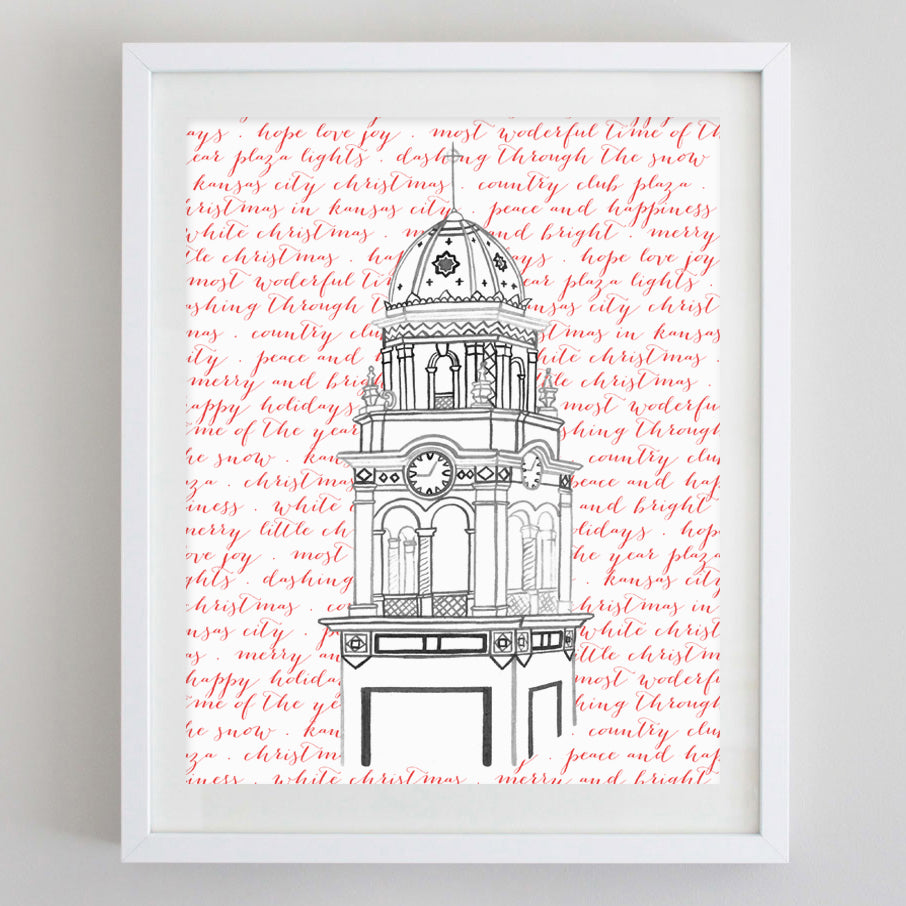 ays . hope love joy . most woderful time of th
ear plaza lights . dashing through the snow
kansas city christmas . country club plaza .
hristmas in kansas city peace and happiness
white christmas . m nd bright . merry
tle christmas . ha ys . hope love joy
most woderful ti ear plaza lights .
ashing through t nsas city christ
mas . country clu tmas in kansas
ity . peace and h white christmas .
merry and brigh tle christmas .
happy holidays most woderfu
ime of the year shing through
he snow . kan country clu
za . christmas peace and hap
iness . white and bright
merry little ch olidays . hop
ove joy . most the year plaza
ghts . dashing . kansas city
christmas . co hristmas in
nsas city . p white christ
as . merry an ittle christm
happy holida most woderf
ime of the ye hing through
he snow . kan country clu
za . christm . peace and hap
iness . white christmas . merry and bright